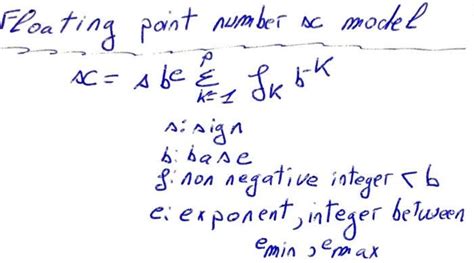 Floating point number x model
x = s b^e \sum_{k=1}^{p} f_k b^{-k}
s: sign
b: base
f: non negative integer < b
e: exponent, integer between
e_min, e_max